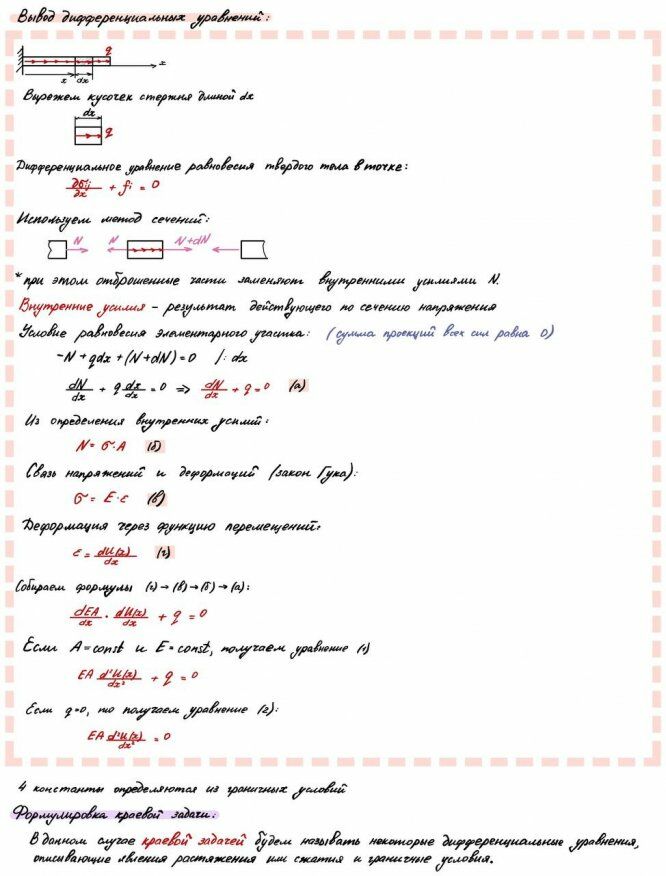 Вывод дифференциальных уравнений:
q
x dx x
Вырежем кусочек стержня длиной dx
dx
q
Дифференциальное уравнение равновесия твердого тела в точке:
∂σij/∂x + fi = 0
Используем метод сечений:
N N N+dN
* при этом отброшенные части заменяют внутренними усилиями N.
Внутренние усилия – результат действующего по сечению напряжения
Условие равновесия элементарного участка: (сумма проекций всех сил равна 0)
-N + qdx + (N+dN) = 0 /: dx
dN/dx + q dx/dx = 0 => dN/dx + q = 0 (а)
Из определения внутренних усилий:
N = σ·A (б)
Связь напряжений и деформаций (закон Гука):
σ = E·ε (в)
Деформация через функцию перемещений:
ε = dU(x)/dx (г)
Собираем формулы (г) → (в) → (б) → (а):
dEA/dx · dU(x)/dx + q = 0
Если A = const и E = const, получаем уравнение (1)
EA d²U(x)/dx² + q = 0
Если q=0, то получаем уравнение (2):
EA d²U(x)/dx² = 0
4 константы определяются из граничных условий
Формулировка краевой задачи:
В данном случае краевой задачей будем называть некоторые дифференциальные уравнения,
описывающие явления растяжения или сжатия и граничные условия.